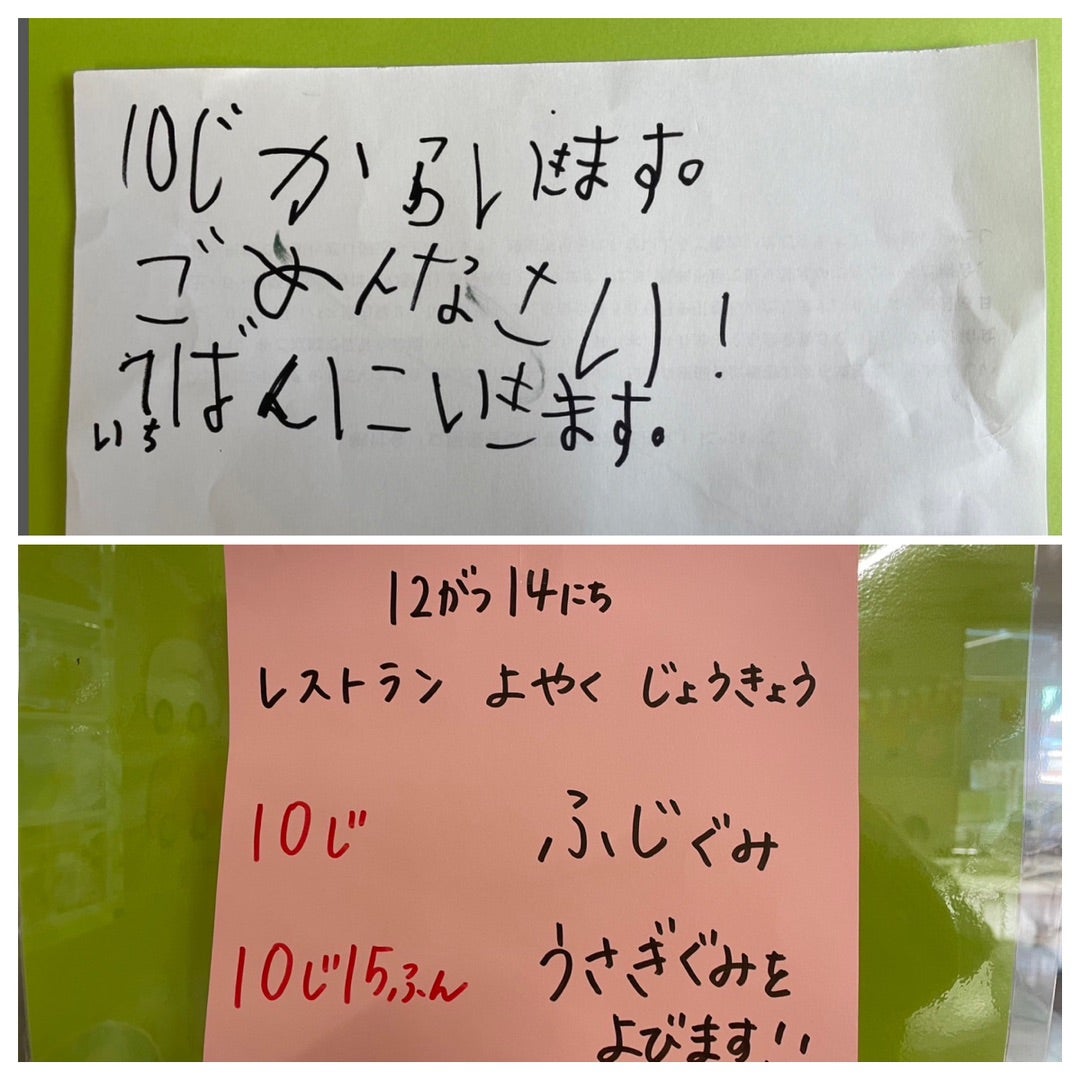 10じからいきます。
ごめんなさい!
1ばんにいきます。
いち
12がつ14にち
レストラン よやく じょうきょう
10じ ふじぐみ
10じ15ふん うさぎぐみを
よびます!!